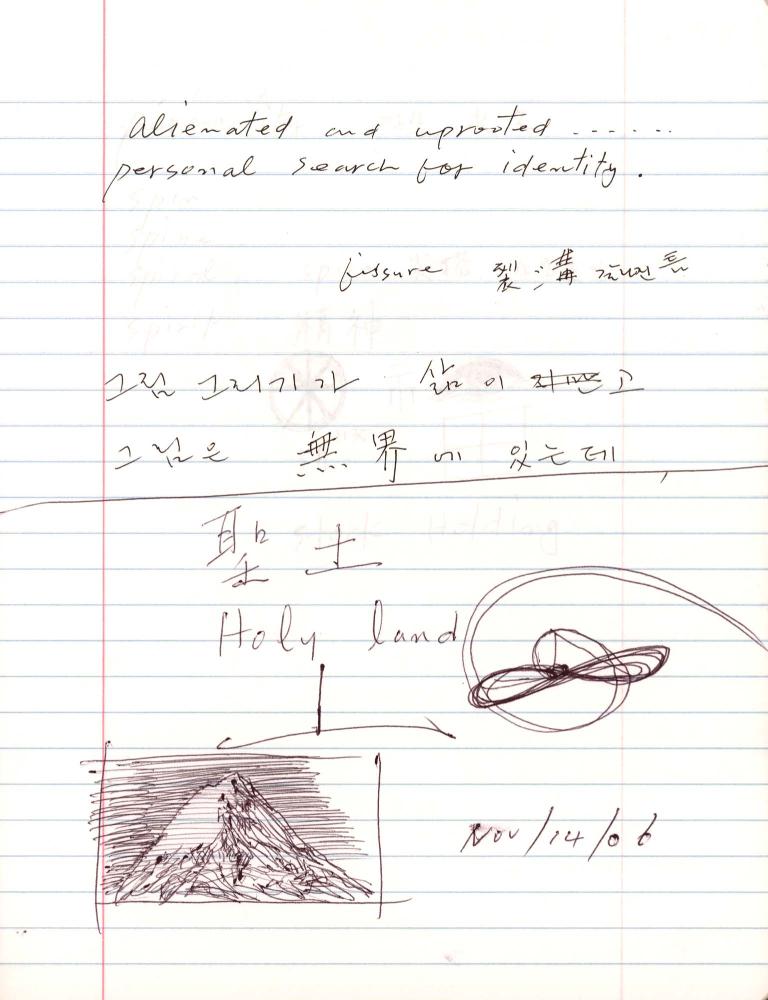 alienated and uprooted . . . . . . .
personal search for identity.
fissure 裂溝 틈
그림 그리기가 삶이 고
그림은 無界에 있는데
聖土
Holy land
Nov/14/06